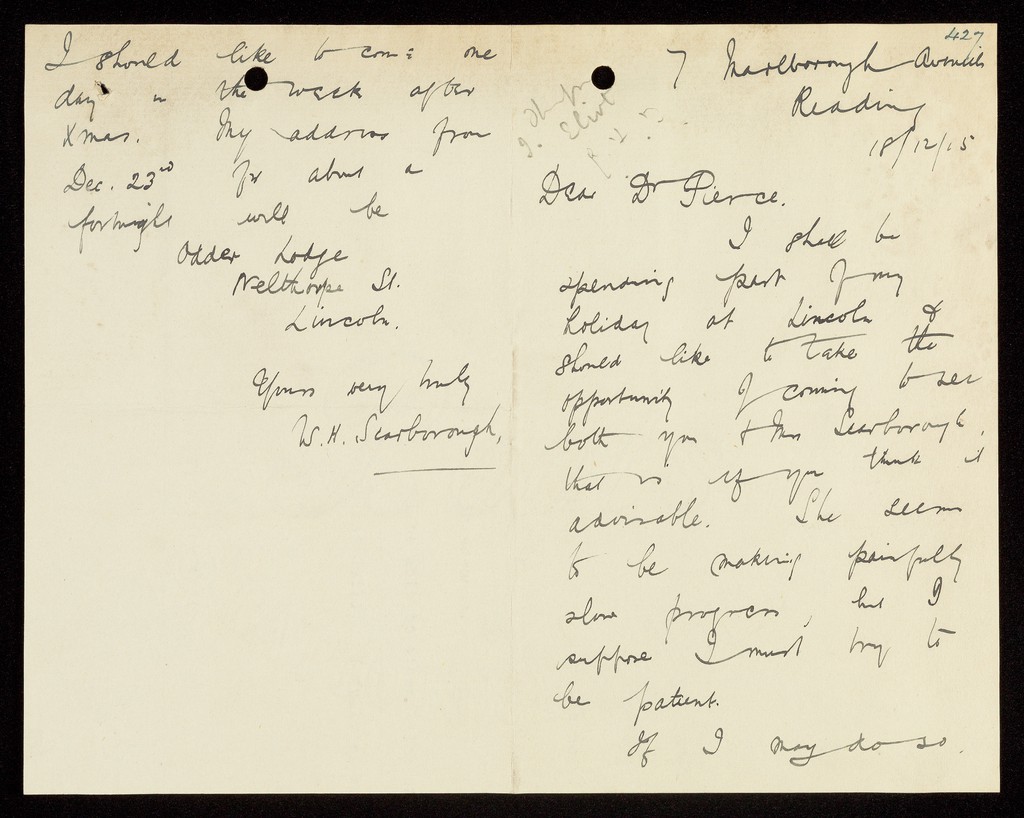 427
7 Marlborough Avenue
Reading
18/12/15
Dear Dr Pierce.
I shall be
spending part of my
holiday at Lincoln &
should like to take the
opportunity of coming to see
both you & Mrs Scarborough,
that is if you think it
advisable. She seems
to be making painfully
slow progress, but I
suppose I must try to
be patient.
If I may do so,
I should like to come one
day in the week after
Xmas. My address from
Dec. 23rd for about a
fortnight will be
Odder Lodge
Nelthorpe St.
Lincoln.
Yours very truly
W. H. Scarborough,